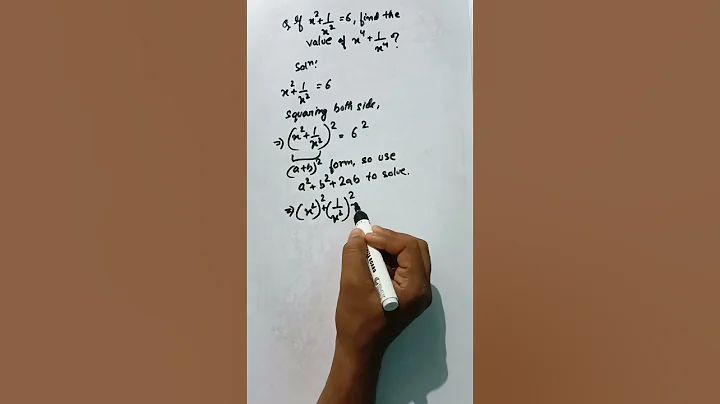 Q. If x²+1/x²=6, find the
value of x⁴+1/x⁴?
Solⁿ:
x²+1/x² = 6
squaring both side,
⇒ (x²+1/x²)² = 6²
(a+b)² form, so use
a²+b²+2ab to solve.
⇒ (x²)²+(1/x²)²